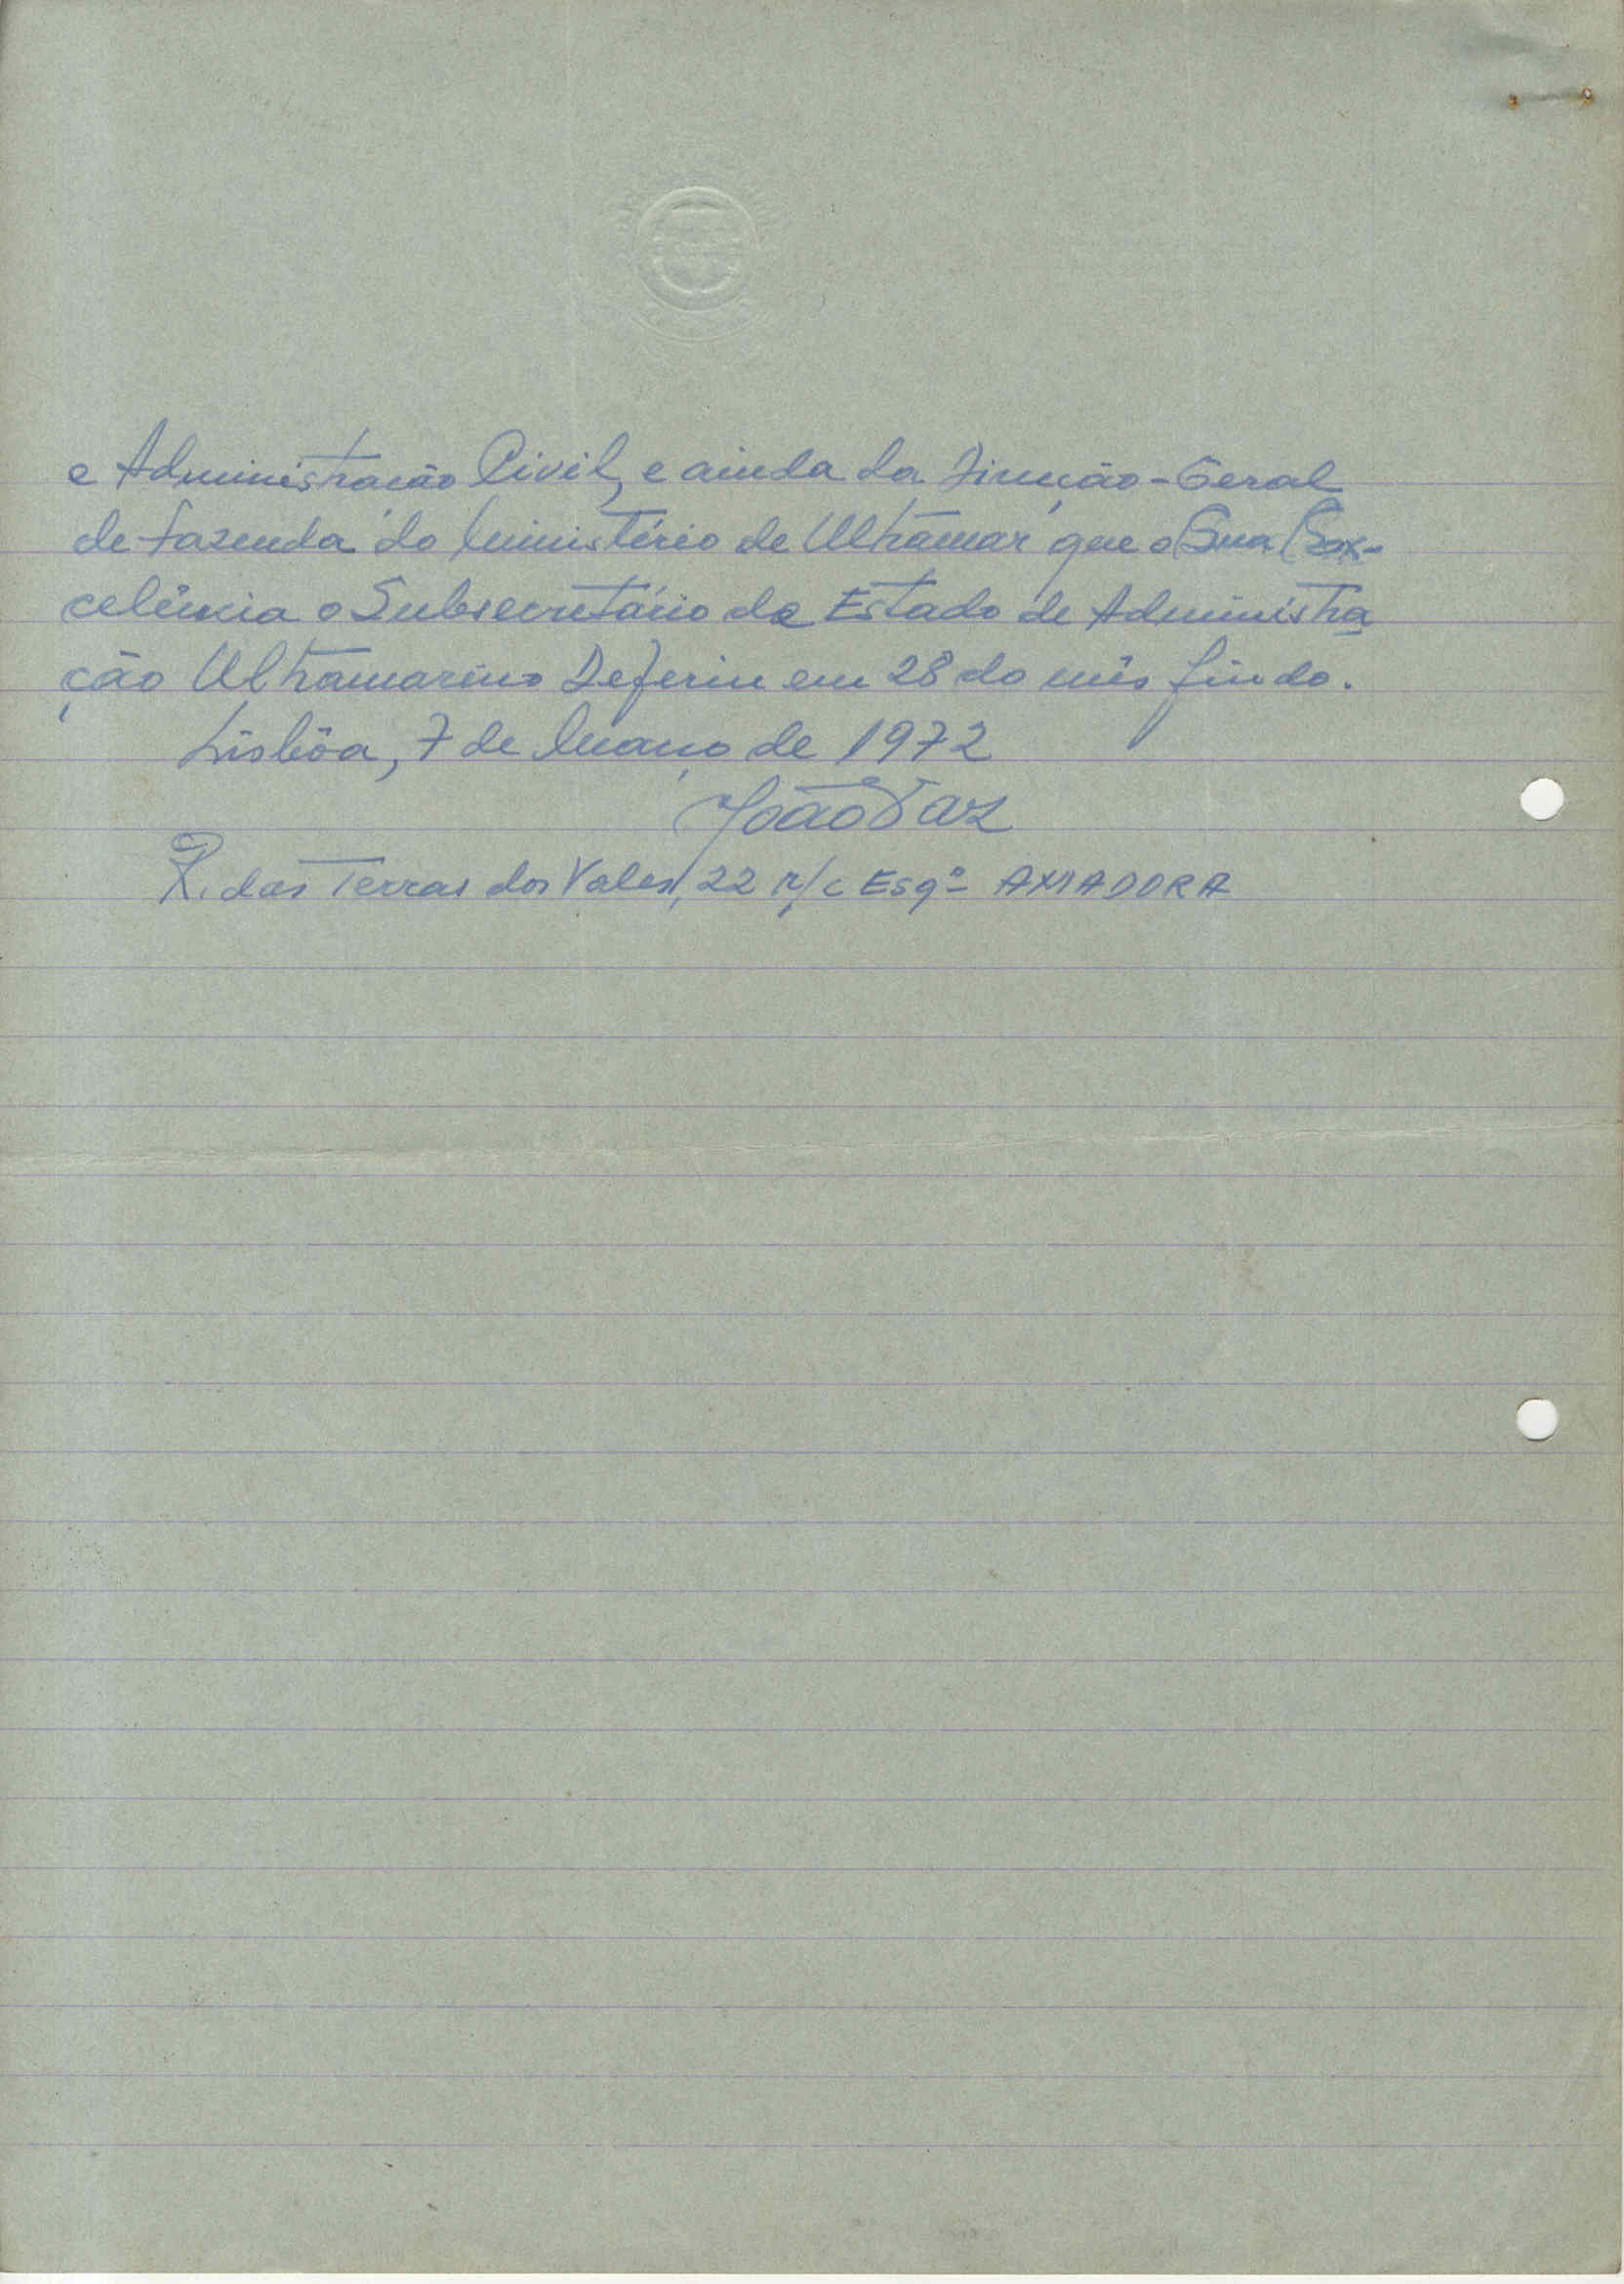 e Administração Civil, e ainda da Direcção-Geral
de fazenda do Ministério de Ultramar que o Sua Ex-
celência o Subsecretário de Estado de Administra
ção Ultramarino Deferiu em 28 do mês findo.
Lisbôa, 7 de Março de 1972
João Vaz
R. das Terras dos Vales, 22 r/c Esqº AMADORA